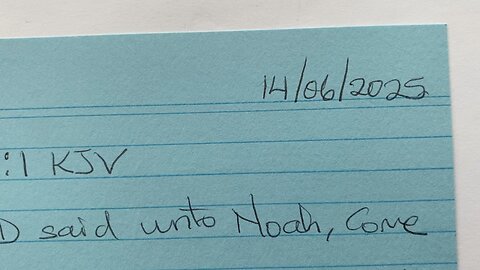 14/06/2025
:1 KJV
D said unto Noah, Come